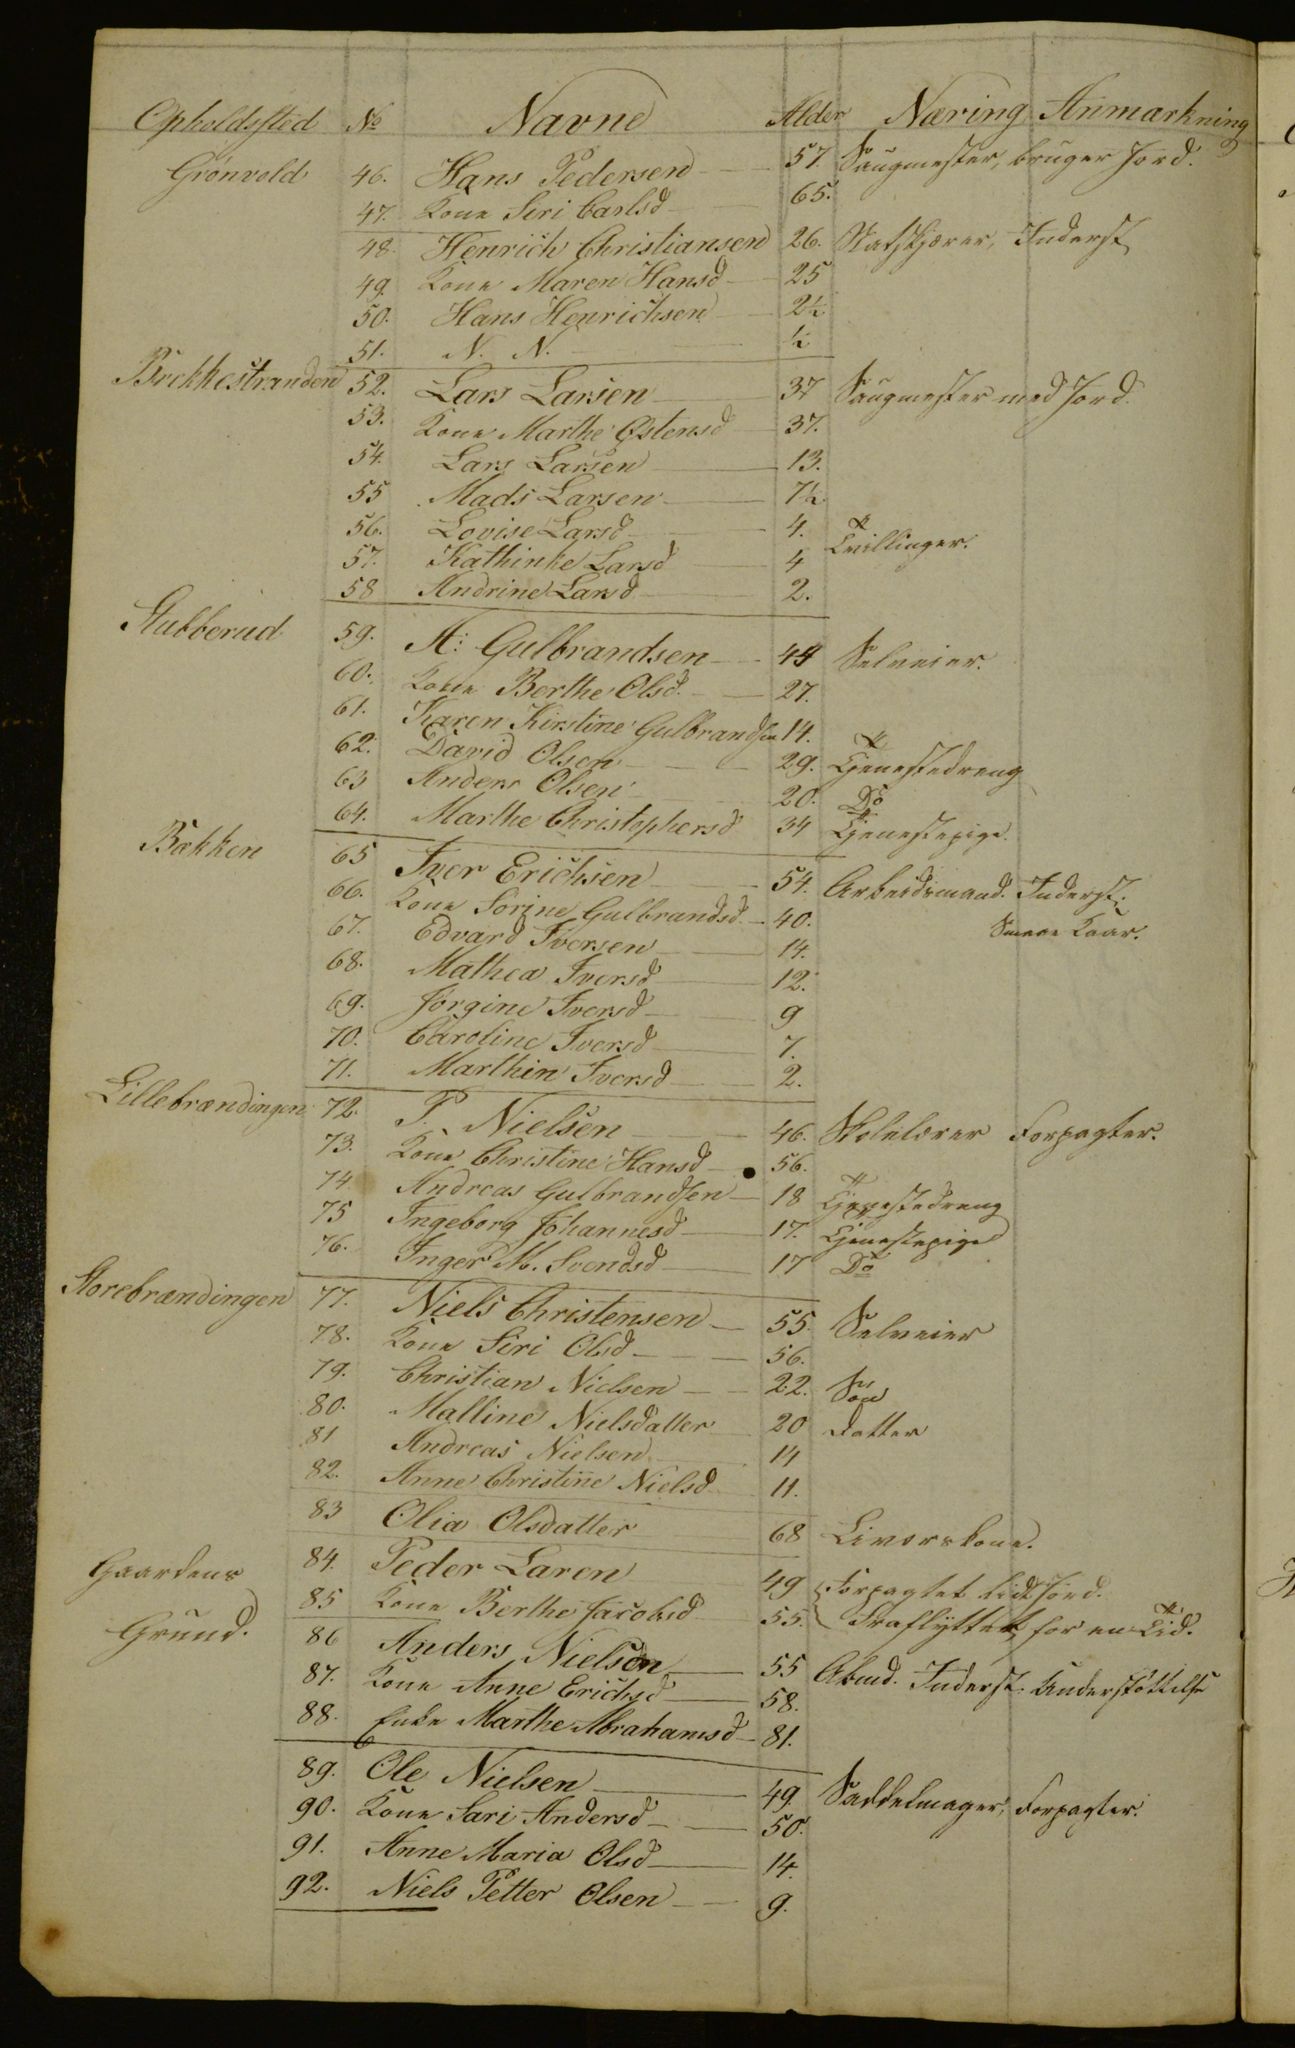 Opholdssted No Navne Alder Næring Anmærkning
Grønvold 46. Hans Pedersen 57. Saugmester, bruger Jord.
47. Kone Siri Carlsd 65.
48. Henrich Christiansen 26. Inderst
49. Kone Maren Hansd 25
50. Hans Henrichsen 2½
51. N. N. ½
Brekkestranden 52. Lars Larsen 37 Saugmester med Jord.
53. Kone Marthe Østensd 37.
54. Lars Larsen 13.
55 Mads Larsen 7½
56. Lovise Larsd 4. Tvillinger.
57. Kathinke Larsd 4
58 Andrine Larsd 2.
Stubberud 59. A: Gulbrandsen 44 Selveier.
60. Kone Berthe Olsd. 27.
61. Karen Kirstine Gulbrandsen 14.
62. David Olsen 29. Tjenestedreng
63 Anders Olsen 20. Do
64. Marthe Christophersd 34 Tjenestepige.
Bakken 65 Iver Erichsen 54. Arbeidsmand. Inderst.
66. Kone Sorine Gulbrandsd. 40. Smaae Kaar.
67. Edvard Iversen 14.
68. Mathea Iversd 12.
69. Jørgine Iversd 9
70. Caroline Iversd 7.
71. Marthin Iversd 2.
Lillebrændingen 72. P. Nielsen 46. Skolelærer Forpagter.
73. Kone Christine Hansd 56.
74 Andreas Gulbrandsen 18 Tjenestedreng
75 Ingeborg Johannesd 17. Tjenestepige
76. Inger M. Svendsd 17 Do
Storebrændingen 77. Niels Christensen 55. Selveier
78. Kone Siri Olsd 56.
79. Christian Nielsen 22. Søn
80. Malline Nielsdatter 20 Datter
81 Andreas Nielsen 14
82. Anne Christine Nielsd 11.
83 Olia Olsdatter 68 Livørskone.
Gaardens 84. Peder Laren 49 Forpagtet lidt Jord.
Grund. 85 Kone Berthe Jacobsd 55. Fraflyttet for en Tid.
86 Anders Nielsen 55 Abmd. Inderst. Understøttelse
87. Kone Anne Erichsd 58.
88. Enke Marthe Abrahamsd 81.
89. Ole Nielsen 49. Saddelmager, Forpagter.
90. Kone Sari Andersd 50.
91. Anne Maria Olsd 14.
92. Niels Petter Olsen 9.